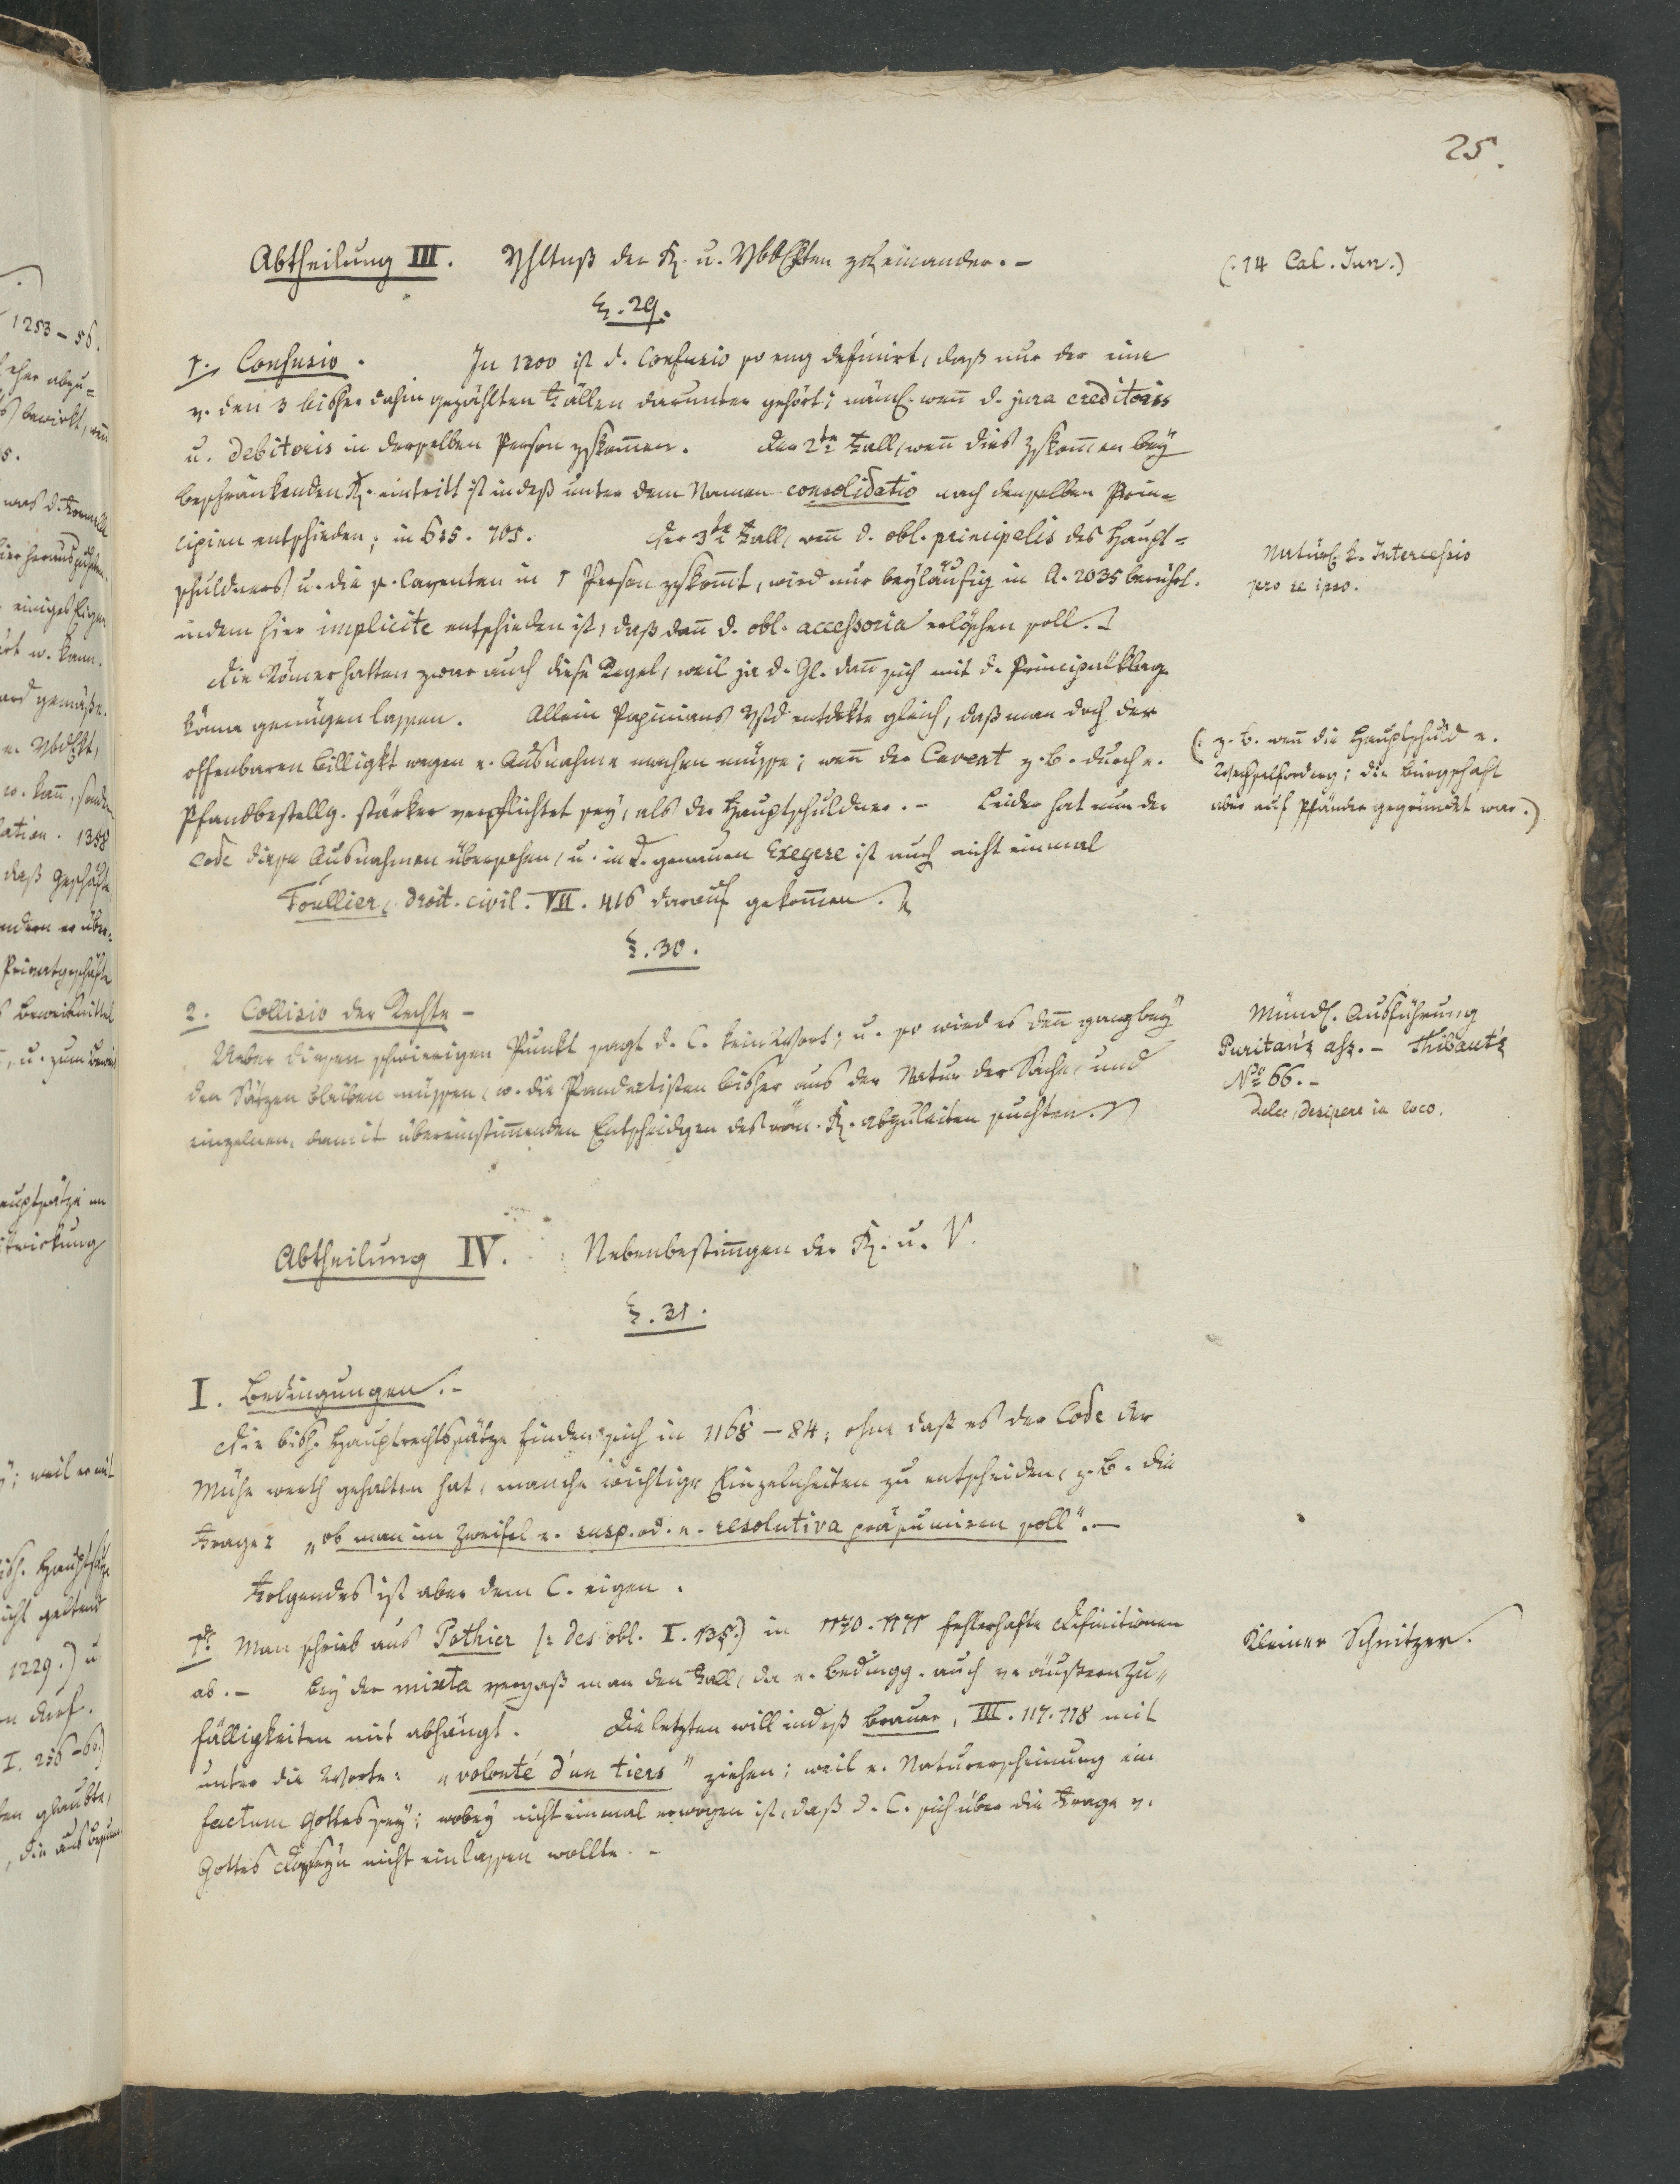 25.
Abtheilung III. Vhltnß der R. u. Vbdlkten zu einander. –
(:14 Cal. Jun.)
§. 29.
1. Confusio. In 1300 ist d. Confusio so eng definirt, daß nur der eine
v. den 3 bisher dahin gezählten Fällen darunter gehört; näml. weñ d. jura creditoris
u. debitoris in derselben Person zskom̃en. Der 2te Fall, weñ dies Zskom̃en bey
beschränkenden R. eintritt ist indeß unter dem Namen consolidatio nach denselben Prin=
cipien entschieden; in 625. 705. Der 3te Fall, weñ d. obl. principalis des Haupt=
schuldners u. die s. Caventen in 1 Person zskom̃t, wird nur beyläufig in A. 2035 berührt.
indem hier implicite entschieden ist, daß dañ d. obl. accessoria erlöschen soll. –
Natürl. d. Intercessio
pro re ipso.
Die Römer hatten zwar auch diese Regel, weil ja d. Gl. dañ sich mit d. Principalklage
könne genügen lassen. Allein Papinians Vstd entdekte gleich, daß man doch der
offenbaren Billigkt wegen e. Ausnahme machen müsse; weñ der Cavent z. B. durch e.
Pfandbestellg. stärker verpflichtet sey, als der Hauptschuldner. – Leider hat nun der
Code diese Ausnahmen übersehen, u. in d. genauen Exegese ist auch nicht einmal
Toullier, droit. civil. VII. 416 darauf gekom̃en.
(: z. B. weñ die Hauptschuld e.
Wechselforderg; die Bürgschaft
aber auf Pfänder gegründet war.)
§. 30.
2. Collisio der Rechte –
Ueber diesen schwierigen Punkt sagt d. C. kein Wort; u. so wird es deñ ganz bey
den Sätzen bleiben müssen, w. die Pandectisten bisher aus der Natur der Sache, und
einzelnen, damit übereinstim̃enden Entscheidgen des röm. R. abzuleiten suchten.
Mündl. Ausführung
Thibaut's
No 66. –
desipere in loco.
Abtheilung IV. Nebenbestim̃ungen der R. u. V.
§. 31.
I. Bedingungen. –
Die bish. Hauptrechtssätze finden sich in 1168 – 84; ohne daß es der Code der
Mühe werth gehalten hat, manche wichtige Einzelnheiten zu entscheiden, z. B. die
Frage: „ob man im Zweifel e. susp. od. e. resolutiva präsumiren soll". –
Folgendes ist aber dem C. eigen.
1o. Man schrieb aus Pothier (: des obl. I. 135.) in 1170. 1171 fehlerhafte Definitionen
ab. – Bey der mixta vergaß man den Fall, da e. Bedingg. auch v. äußern Zu=
fälligkeiten mit abhängt. Die letzten will indeß Brauer, III. 117. 118 mit
unter die Worte: „volonté d'un tiers" ziehen; weil e. Naturerscheinung ein
factum Gottes sey; wobey nicht einmal erwogen ist, daß d. C. sich über die Frage v.
Gottes Daseyn nicht einlassen wollte. –
Kleiner Schnitzer.
1253 – 56.
1358
1229.) u
I. 256 – 60.)